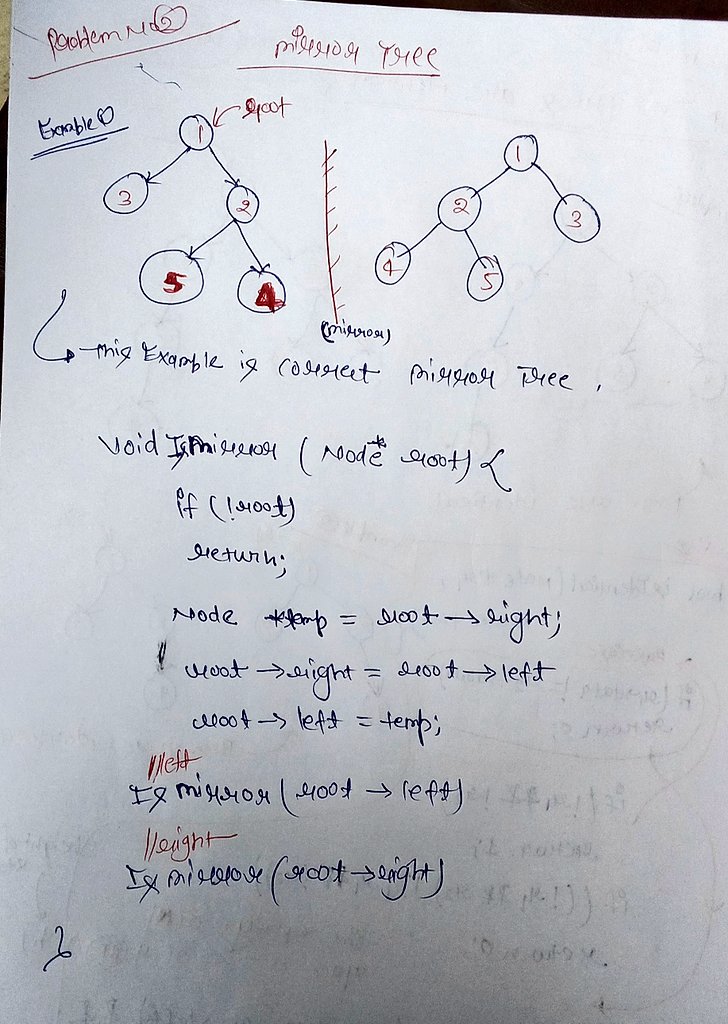 Problem No ②
Mirror Tree
Example ①
root
1
3
2
5
4
1
2
3
4
5
(mirror)
This Example is correct mirror Tree.
void Ismirror (Node* root) {
if (!root)
return;
Node *temp = root → right;
root → right = root → left
root → left = temp;
//left
Ismirror (root → left)
//right
Ismirror (root → right)
}